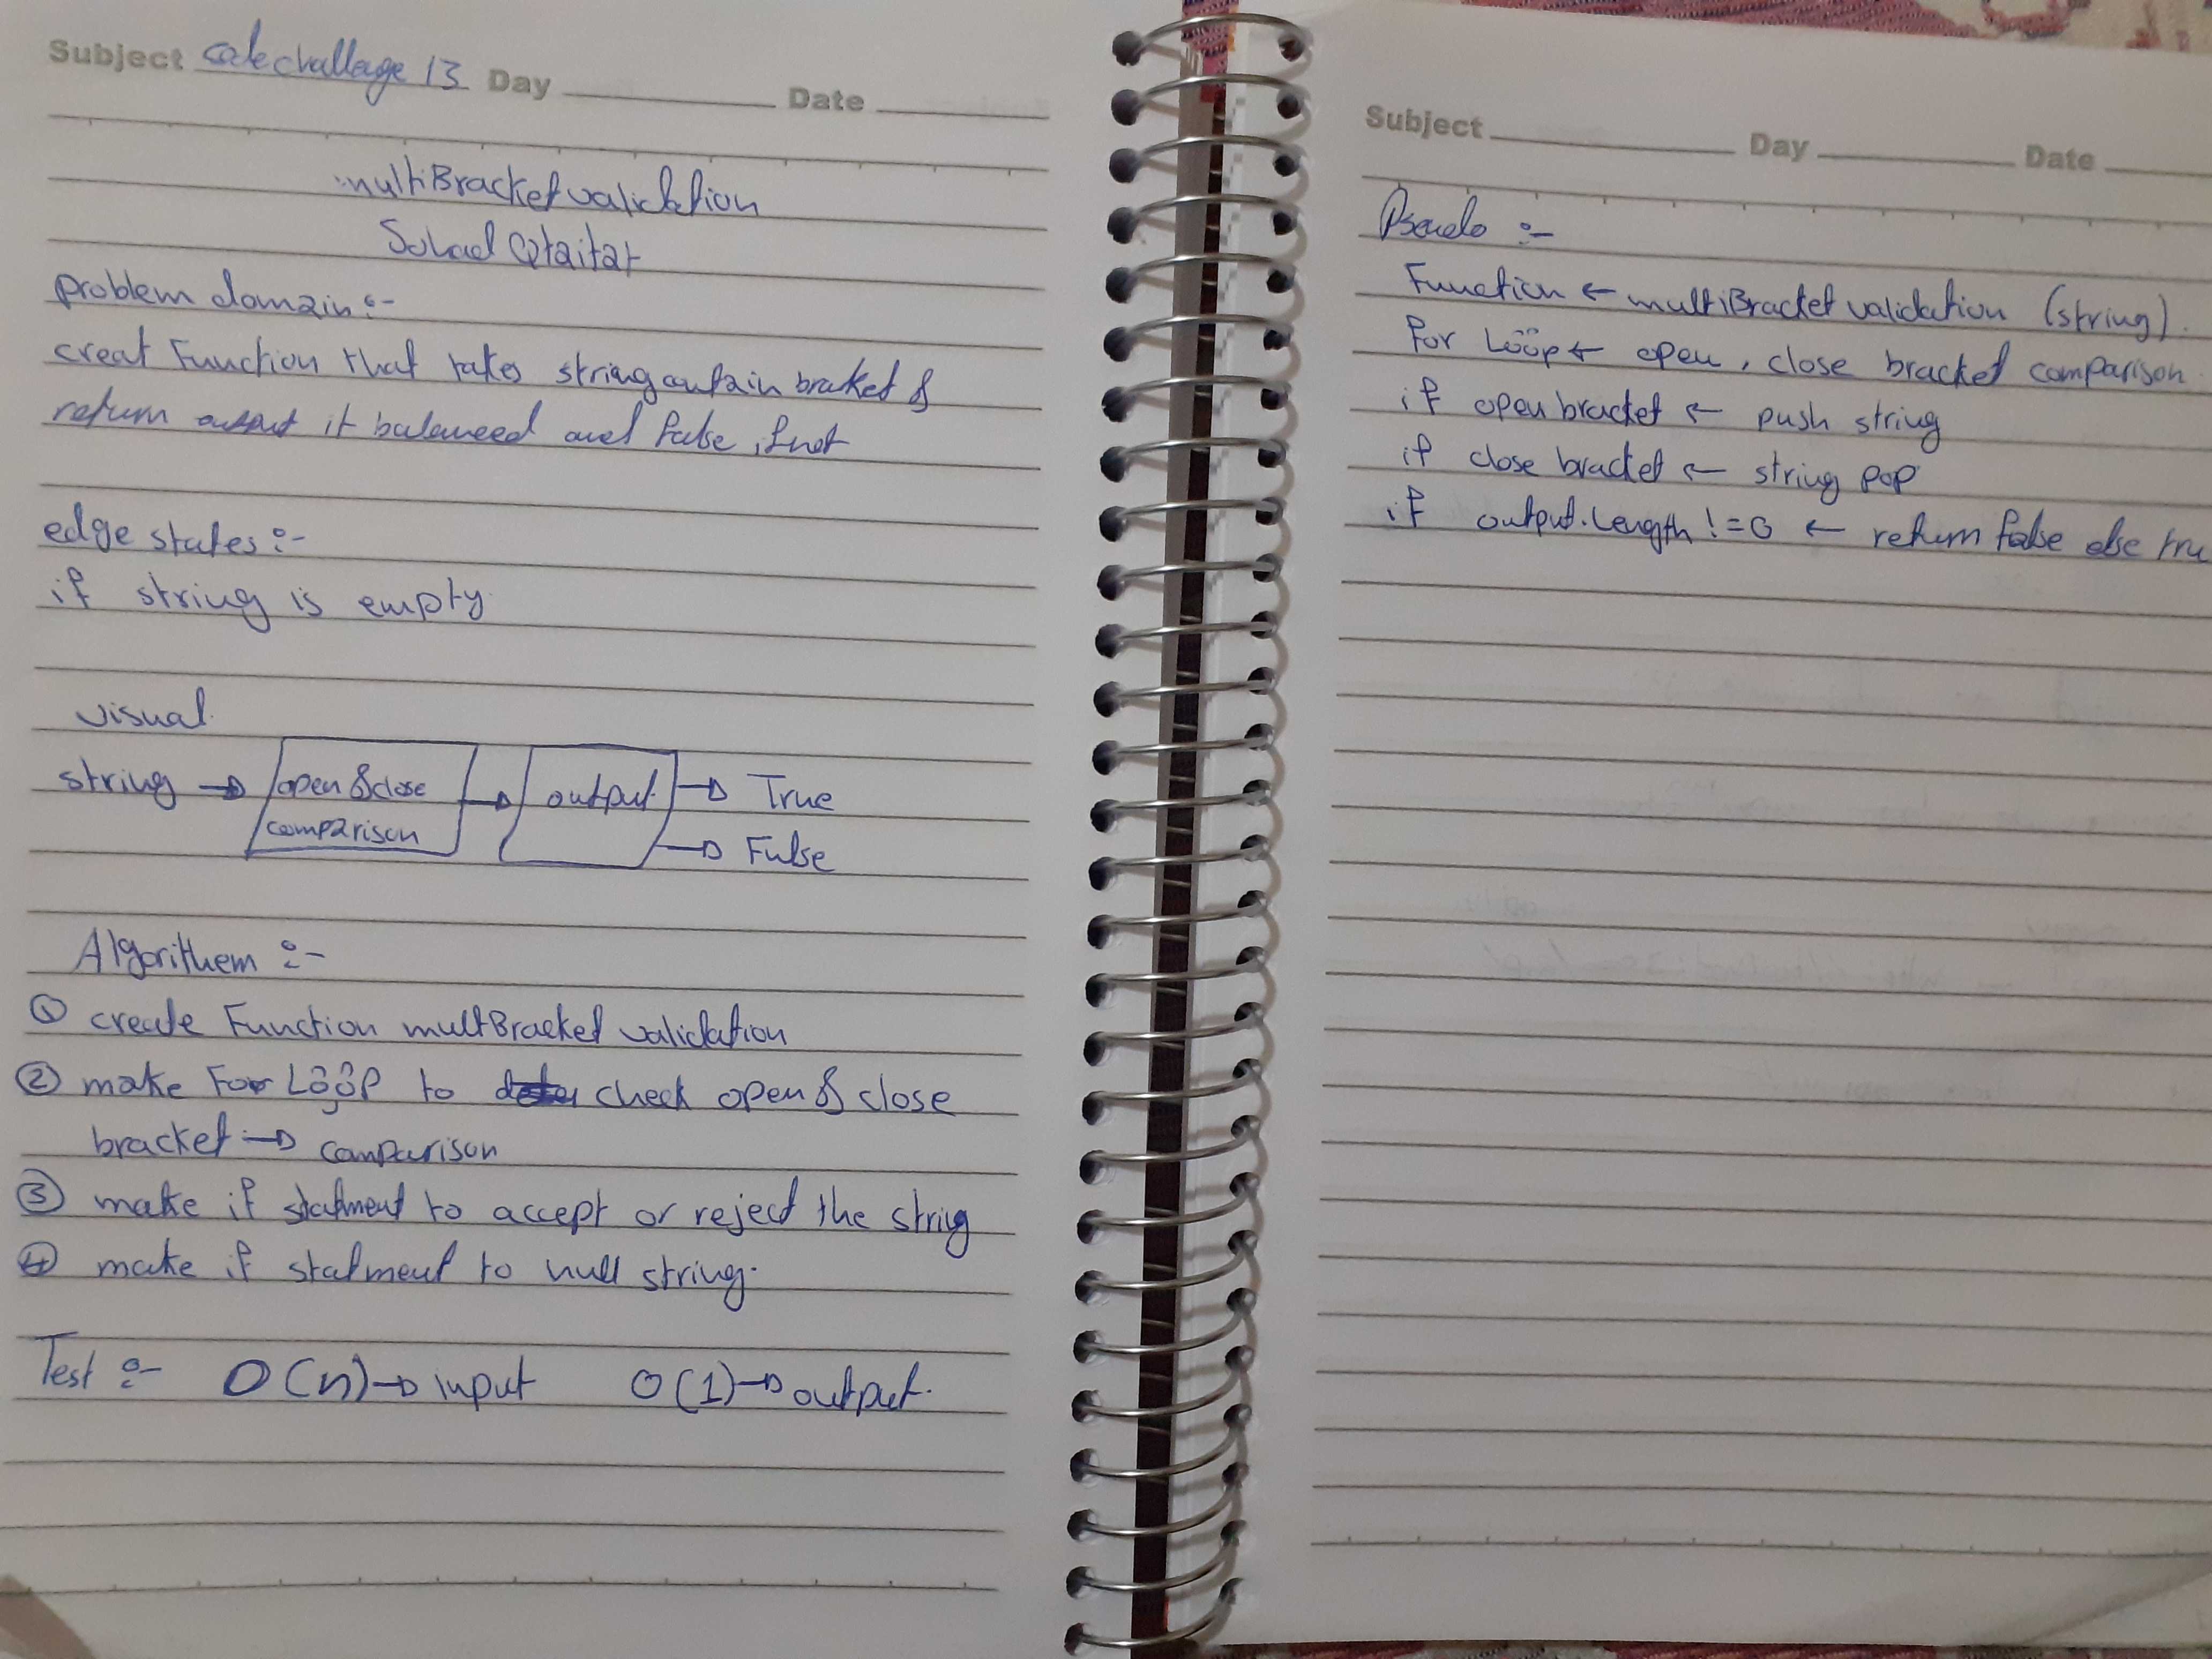 Subject code challage 13 Day Date
multiBracketvalidation
Qtaitat
problem domain:-
creat Function that takes string contain braket &
return output it balaneed and false if not
edge states:-
if string is empty
visual
string → open & close comparison → output → True
→ False
Algorithem :-
① create Function multBracket validation
② make For Loop to check open & close
bracket → comparison
③ make if statment to accept or reject the string
④ make if statment to null string.
Test :- O(n) → input O(1) → output.
Subject Day Date
Pseudo :-
Function ← multiBracket validation (string).
For Loop ← open, close bracket comparison
if open bracket ← push string
if close bracket ← string pop
if output.Length != 0 ← return false else tru